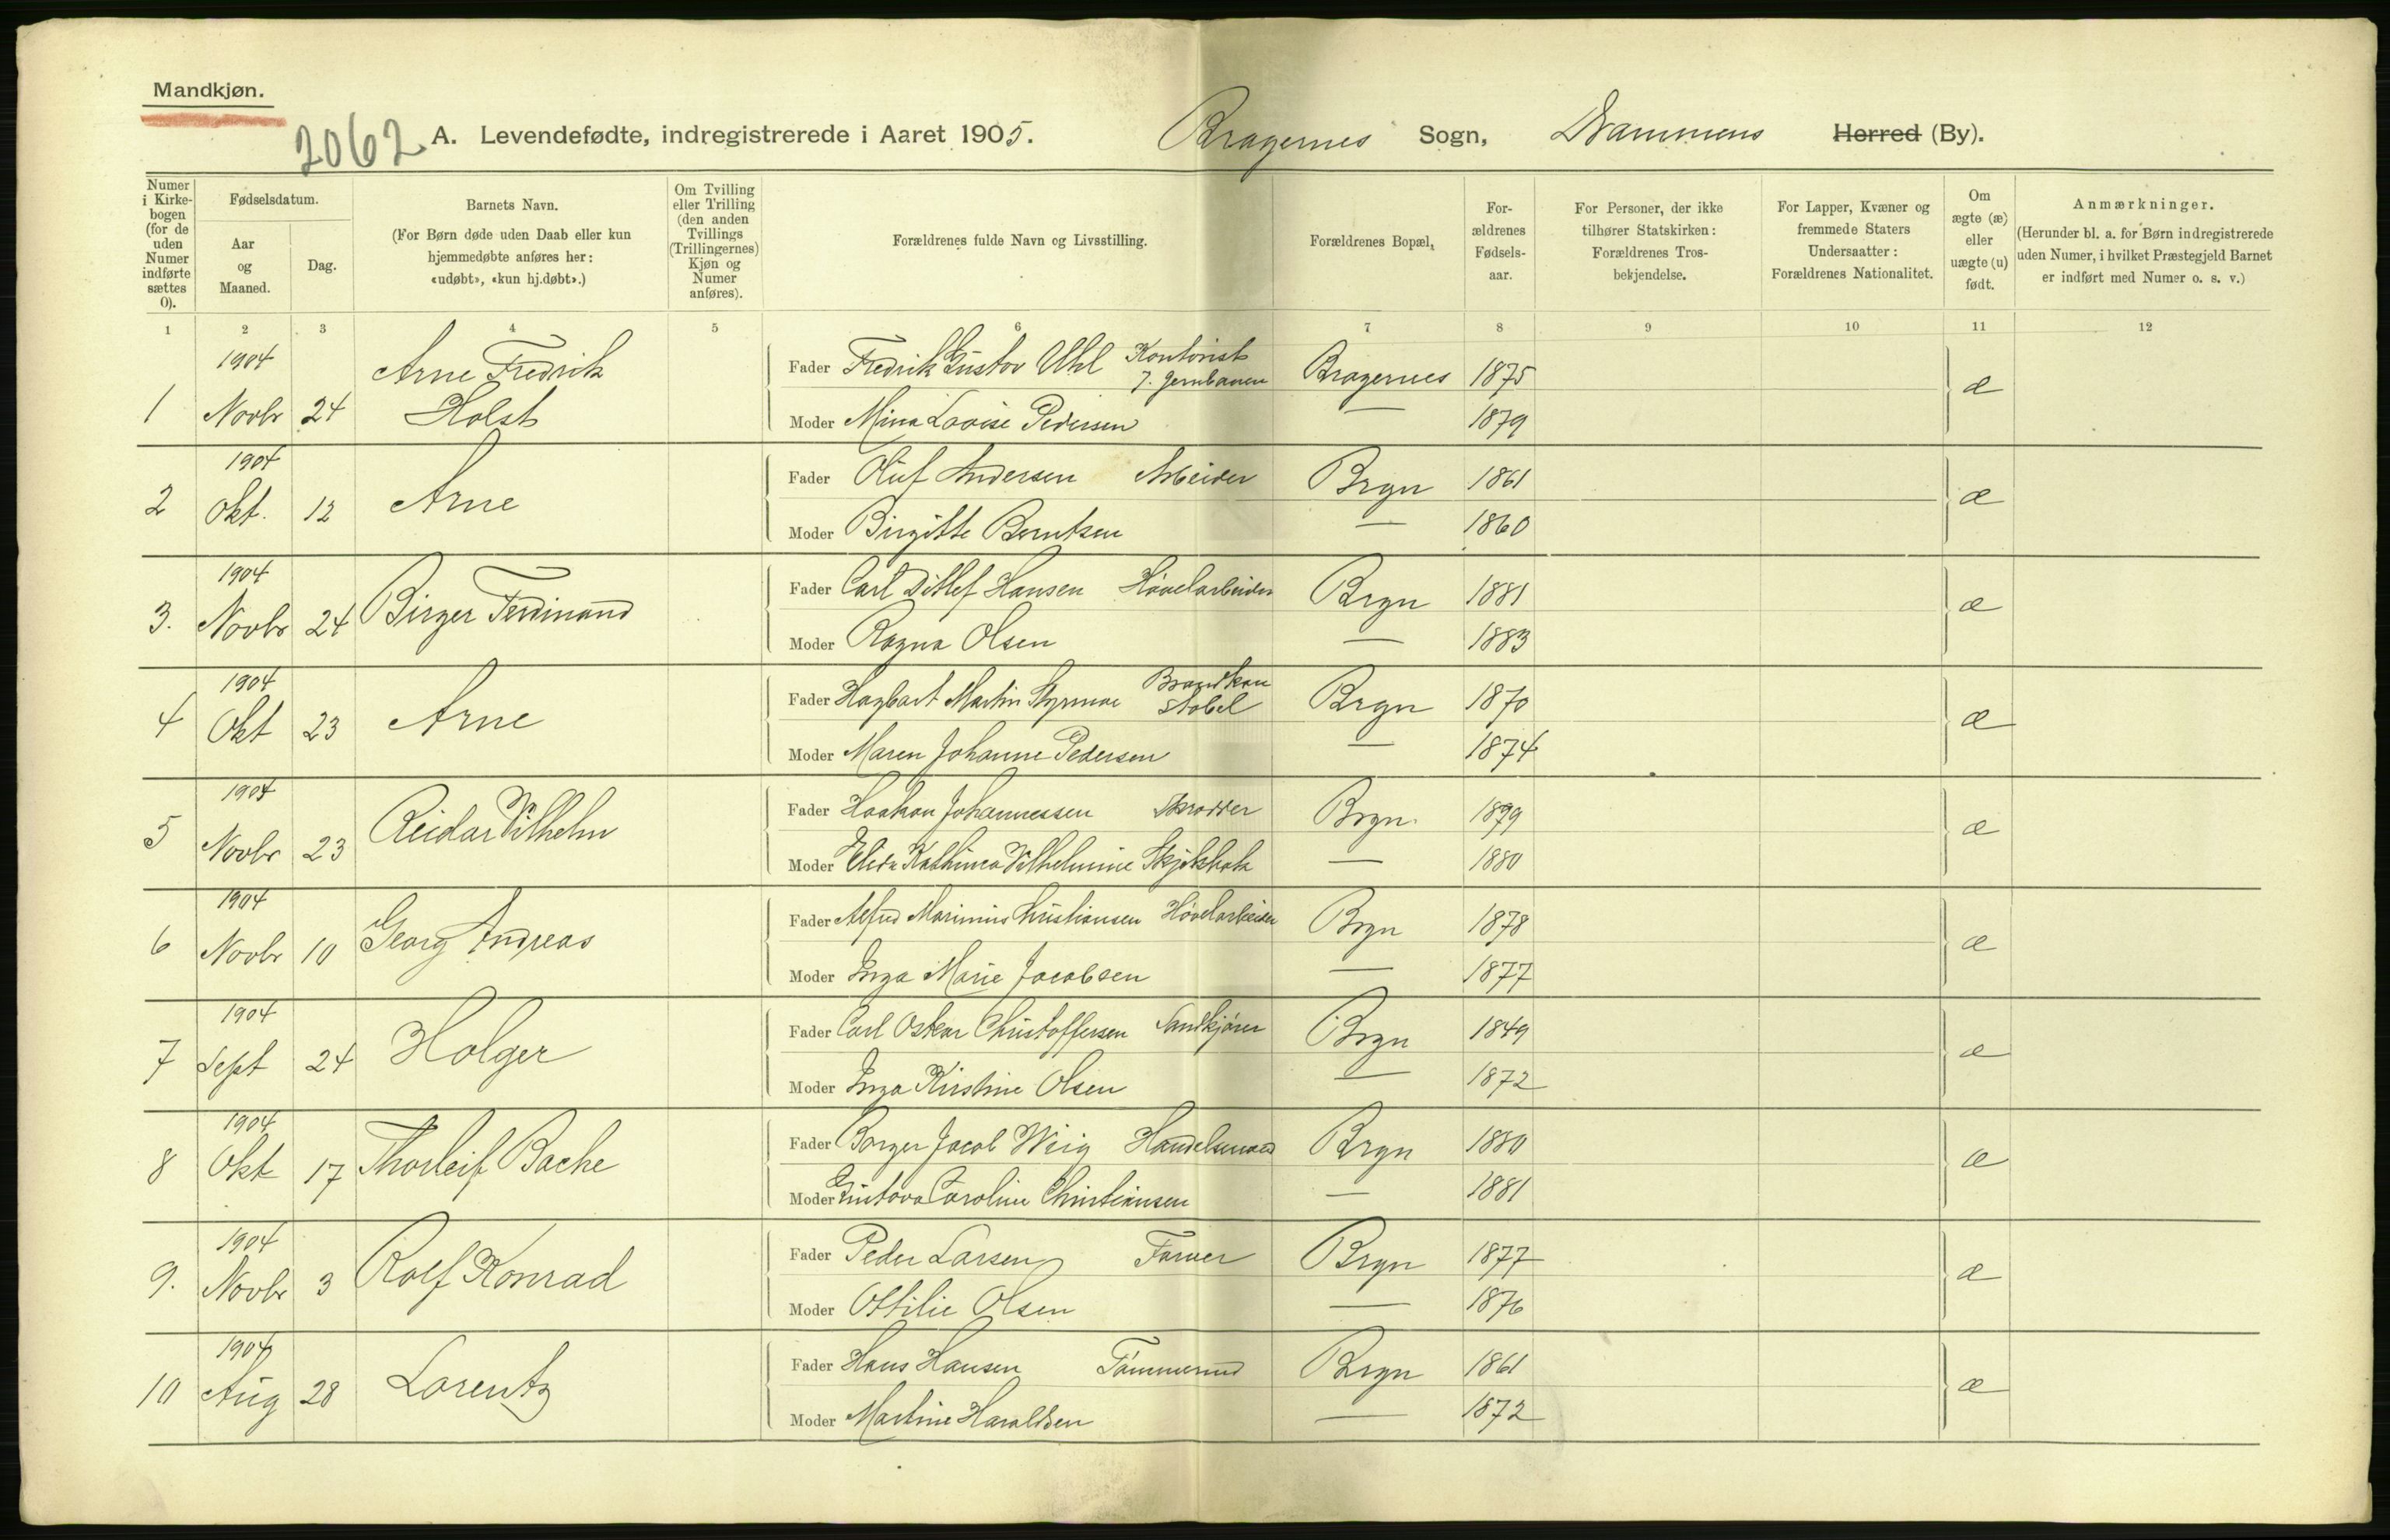 Mandkjøn.
2062
A. Levendefødte, indregistrerede i Aaret 1905. Bragernes Sogn, Drammens Herred (By).
Numer i Kirkebogen (for de uden Numer indførte sættes 0).
Fødselsdatum.
Aar og Maaned.
Dag.
Barnets Navn.
(For Børn døde uden Daab eller kun hjemmedøbte anføres her: «udøbt», «kun hj.døbt».)
Om Tvilling eller Trilling (den anden Tvillings (Trillingernes) Kjøn og Numer anføres).
Forældrenes fulde Navn og Livsstilling.
Forældrenes Bopæl.
Forældrenes Fødselsaar.
For Personer, der ikke tilhører Statskirken: Forældrenes Trosbekjendelse.
For Lapper, Kvæner og fremmede Staters Undersaatter: Forældrenes Nationalitet.
Om ægte (æ) eller uægte (u) født.
Anmærkninger.
(Herunder bl. a. for Børn indregistrerede uden Numer, i hvilket Præstegjeld Barnet er indført med Numer o. s. v.)
1 2 3 4 5 6 7 8 9 10 11 12
1 1904 Novbr 24 Arne Fredrik Holst
Fader Fredrik Gustav Uhl Kontorist J. Jernbanen Bragernes 1875 æ
Moder Mina Lovise Pedersen — 1879
2 1904 Okt. 12 Arne
Fader Oluf Andersen Arbeider Brgn 1861 æ
Moder Birgitte Berntsen — 1860
3. 1904 Novbr 24 Birger Ferdinand
Fader Carl Ditlef Hansen Høvelarbeider Brgn 1881 æ
Moder Ragna Olsen — 1883
4 1904 Okt 23 Arne
Fader Hagbart Martin Styrmoe Brandkonstabel Brgn 1870 æ
Moder Maren Johanne Pedersen — 1874
5 1904 Novbr 23 Reidar Vilhelm
Fader Haakon Johannessen Skrædder Brgn. 1879 æ
Moder Elida Kathinca Vilhelmine — 1880
6 1904 Novbr 10 Georg Andreas
Fader Alfred Marinius Christiansen Høvelarbeider Brgn 1878 æ
Moder Inga Marie Jacobsen — 1877
7 1904 Sept 24 Holger
Fader Carl Oskar Christoffersen Sandkjører Brgn 1849 æ
Moder Inga Kirstine Olsen — 1872
8 1904 Okt 17 Thorleif Bache
Fader Borger Jacob Wiig Handelsmand Brgn 1880 æ
Moder Gustava Caroline Christiansen — 1881
9. 1904 Novbr 3 Rolf Konrad
Fader Peder Larsen Farver Brgn 1877 æ
Moder Ottilie Olsen — 1876
10 1904 Aug 28 Lorentz
Fader Hans Hansen Tømmermd Brgn 1861 æ
Moder Martine Haraldsen — 1872